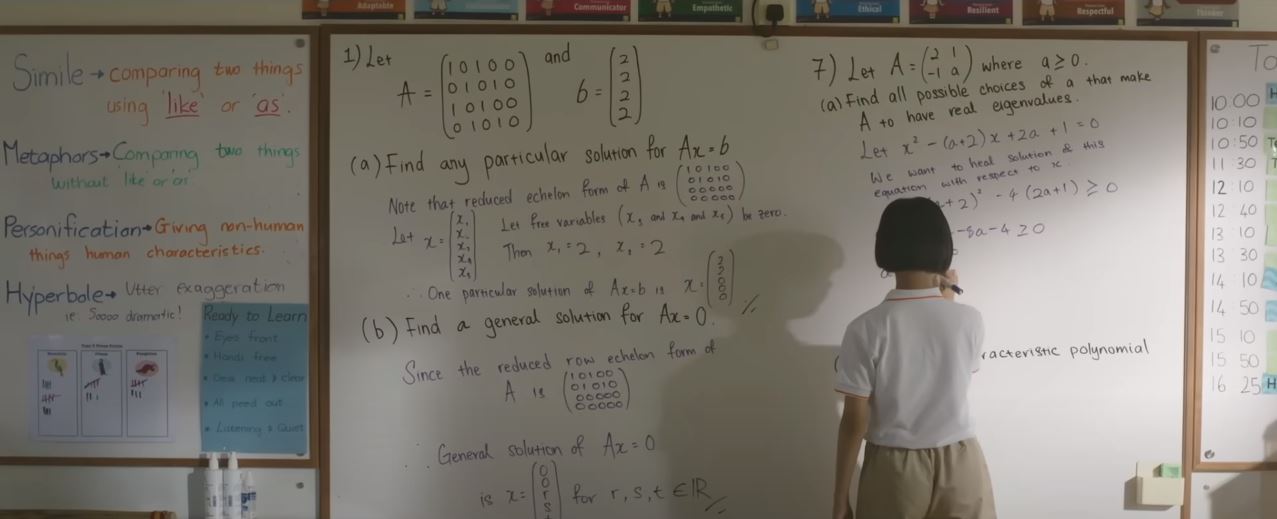 Adaptable
Communicator
Empathetic
Ethical
Resilient
Respectful
Thinker
Simile → comparing two things
using 'like' or 'as'.
Metaphors → Comparing two things
without 'like' or 'as'
Personification → Giving non-human
things human characteristics.
Hyperbole → Utter exaggeration
ie. Soooo dramatic!
Ready to Learn
• Eyes front
• Hands free
• Desk neat & clear
• All peed out
• Listening & Quiet
1) Let A = (1 0 1 0 0 and b = (2
0 1 0 1 0 2
1 0 1 0 0 2
0 1 0 1 0) 2)
(a) Find any particular solution for Ax = b
Note that reduced echelon form of A is (1 0 1 0 0
0 1 0 1 0
0 0 0 0 0
0 0 0 0 0)
Let x = Let free variables (x₃ and x₄ and x₅) be zero.
Then x₁ = 2, x₂ = 2
∴ One particular solution of Ax=b is x = (2
2
0
0
0)
(b) Find a general solution for Ax = 0.
Since the reduced row echelon form of
A is (1 0 1 0 0
0 1 0 1 0
0 0 0 0 0
0 0 0 0 0)
∴ General solution of Ax = 0
is x = (0
0
r
s for r, s, t ∈ ℝ
7) Let A = (2 1
-1 a) where a ≥ 0.
(a) Find all possible choices of a that make
A to have real eigenvalues.
Let x² - (a+2)x + 2a + 1 = 0
We want to heal solution & this
equation with respect to x.
+2)² - 4(2a+1) ≥ 0
-8a - 4 ≥ 0
racteristic polynomial
To
10:00
10:10
10:50
11 30
12:10
12 40
13 10
13 30
14 10
14 50
15 10
15 50
16 25 H